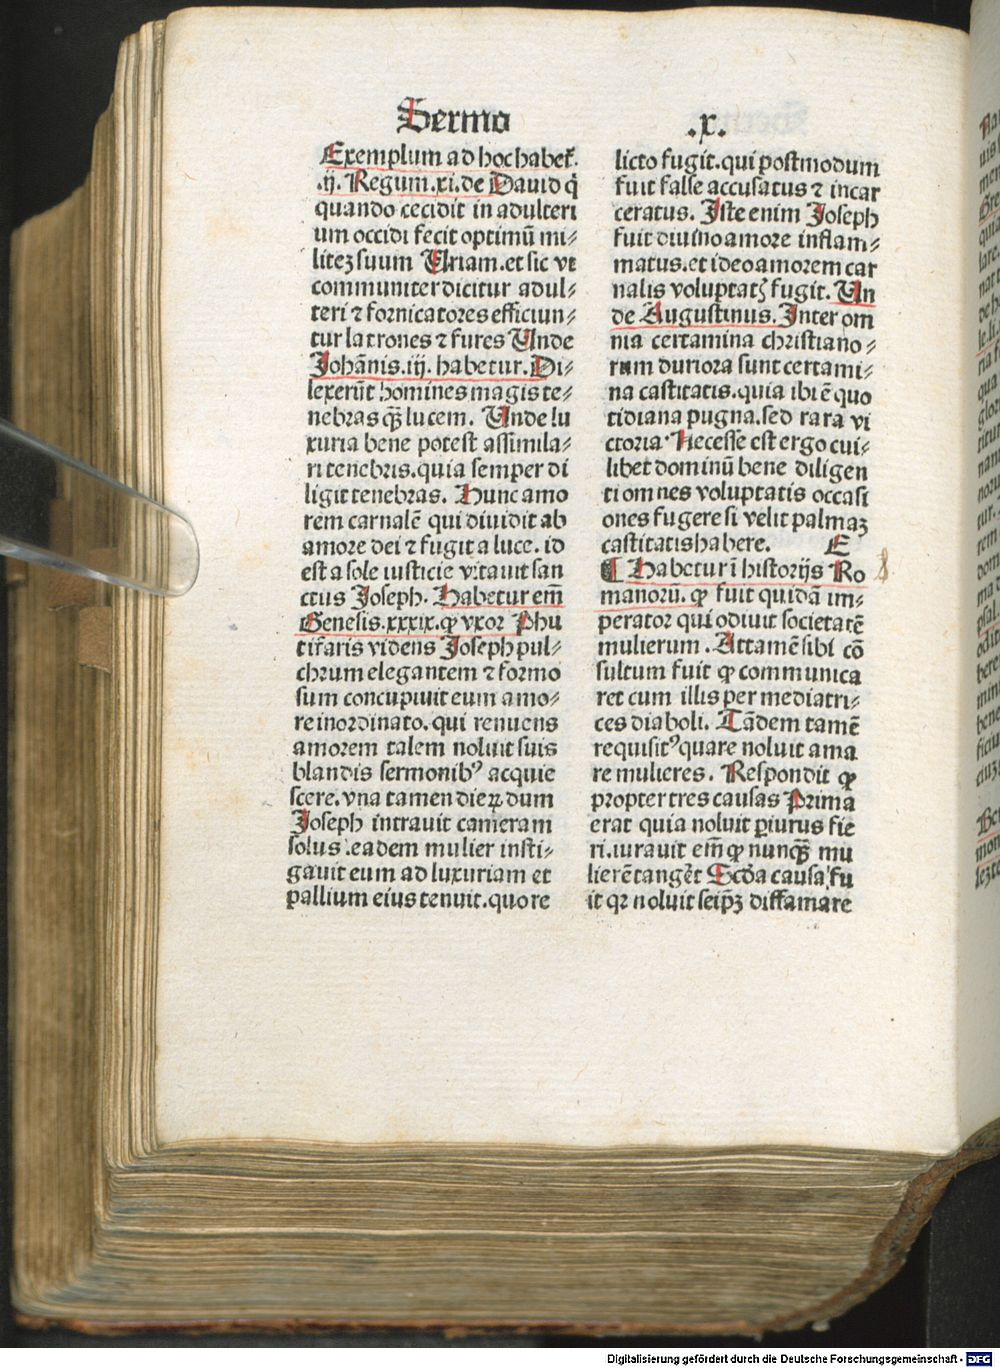 Sermo
.x.
Exemplum ad hoc habet̃.
.ij. Regum.xi.de Dauid q̇
quando cecidit in adulteri
um occidi fecit optimū mi⸗
liteʒ suum Vriam.et sic vt
communiter dicitur adul⸗
teri ⁊ fornicatores efficiun⸗
tur latrones ⁊ fures Vnde
Johānis.iij. habetur. Di⸗
lexerūt homines magis te⸗
nebras q̄ʒ lucem. Vnde lu
xuria bene potest assimila⸗
ri tenebris.quia semper di
ligit tenebras. Hunc amo
rem carnalē qui diuidit ab
amore dei ⁊ fugit a luce. id
est a sole iusticie vitauit san
ctus Joseph. Habetur em̄
Genesis.xxxix.ꝙ vxor Phu
tifaris videns Joseph pul⸗
chrum elegantem ⁊ formo
sum concupiuit eum amo⸗
re inordinato.qui renuens
amorem talem noluit suis
blandis sermonibꝰ acquie
scere.vna tamen dierꝝ dum
Joseph intrauit cameram
solus .eadem mulier insti⸗
gauit eum ad luxuriam et
pallium eius tenuit.quo re
licto fugit.qui postmodum
fuit false accusatus ⁊ incar
ceratus. Iste enim Joseph
fuit diuino amore inflam⸗
matus.et ideo amorem car
nalis voluptatꝭ fugit. Vn
de Augustinus. Inter om
nia certamina christiano⸗
rum duriora sunt certami⸗
na castitatis.quia ibi ē quo
tidiana pugna.sed rara vi
ctoria. Necesse est ergo cui⸗
libet dominū bene diligen
ti omnes voluptatis occasi
ones fugere si velit palmaʒ
castitatis habere. E
¶ Habetur ī historijs Ro
manorū. ꝙ fuit quidā im⸗
perator qui odiuit societatē
mulierum . Attamē sibi cō
sultum fuit ꝙ communica
ret cum illis per mediatri⸗
ces diaboli. Tādem tamē
requisitꝰ quare noluit ama
re mulieres. Respondit ꝙ
propter tres causas Prima
erat quia noluit ꝑiurus fie
ri.iurauit em̄ ꝙ nunqʒ̄ mu
lierē tangēt Scd̄a causa fu
it qꝛ noluit seip̄ʒ diffamare
Digitalisierung gefördert durch die Deutsche Forschungsgemeinschaft - DFG